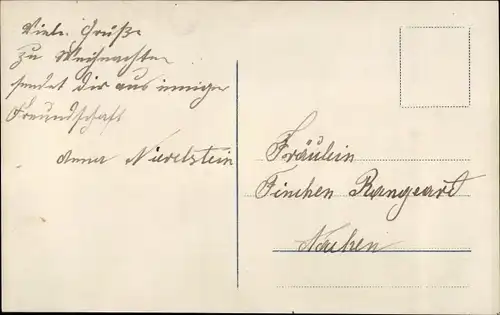 Viele Grüße
zu Weihnachten
sendet dir aus inniger
Freundschaft
Anna Nivelstein
Fräulein
Finchen
Aachen